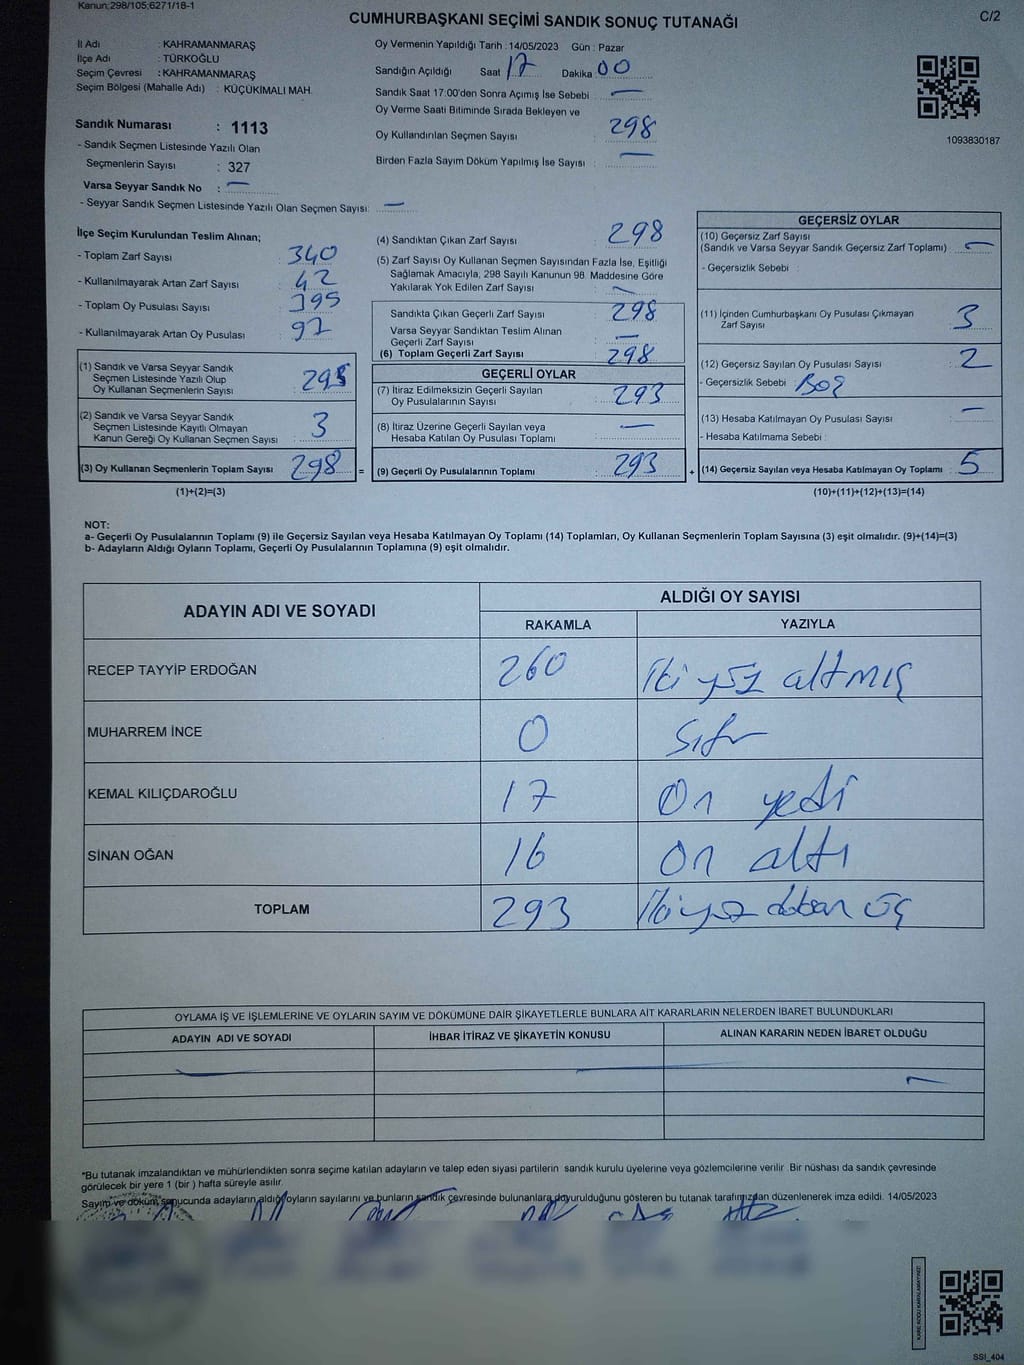 Kanun:298/105;6271/18-1
CUMHURBAŞKANI SEÇİMİ SANDIK SONUÇ TUTANAĞI
C/2
İl Adı : KAHRAMANMARAŞ
İlçe Adı : TÜRKOĞLU
Seçim Çevresi : KAHRAMANMARAŞ
Seçim Bölgesi (Mahalle Adı) : KÜÇÜKİMALI MAH.
Sandık Numarası : 1113
- Sandık Seçmen Listesinde Yazılı Olan
Seçmenlerin Sayısı : 327
Varsa Seyyar Sandık No : —
- Seyyar Sandık Seçmen Listesinde Yazılı Olan Seçmen Sayısı: —
Oy Vermenin Yapıldığı Tarih : 14/05/2023 Gün : Pazar
Sandığın Açıldığı Saat 17 Dakika 00
Sandık Saat 17:00'den Sonra Açımış İse Sebebi : —
Oy Verme Saati Bitiminde Sırada Bekleyen ve
Oy Kullandırılan Seçmen Sayısı : 298
Birden Fazla Sayım Döküm Yapılmış İse Sayısı : —
1093830187
İlçe Seçim Kurulundan Teslim Alınan;
- Toplam Zarf Sayısı : 340
- Kullanılmayarak Artan Zarf Sayısı : 42
- Toplam Oy Pusulası Sayısı : 395
- Kullanılmayarak Artan Oy Pusulası : 97
(1) Sandık ve Varsa Seyyar Sandık
Seçmen Listesinde Yazılı Olup
Oy Kullanan Seçmenlerin Sayısı : 295
(2) Sandık ve Varsa Seyyar Sandık
Seçmen Listesinde Kayıtlı Olmayan
Kanun Gereği Oy Kullanan Seçmen Sayısı : 3
(3) Oy Kullanan Seçmenlerin Toplam Sayısı : 298 =
(1)+(2)=(3)
(4) Sandıktan Çıkan Zarf Sayısı : 298
(5) Zarf Sayısı Oy Kullanan Seçmen Sayısından Fazla İse, Eşitliği
Sağlamak Amacıyla, 298 Sayılı Kanunun 98. Maddesine Göre
Yakılarak Yok Edilen Zarf Sayısı : —
Sandıkta Çıkan Geçerli Zarf Sayısı : 298
Varsa Seyyar Sandıktan Teslim Alınan
Geçerli Zarf Sayısı : —
(6) Toplam Geçerli Zarf Sayısı : 298
GEÇERLİ OYLAR
(7) İtiraz Edilmeksizin Geçerli Sayılan
Oy Pusulalarının Sayısı : 293
(8) İtiraz Üzerine Geçerli Sayılan veya
Hesaba Katılan Oy Pusulası Toplamı : —
(9) Geçerli Oy Pusulalarının Toplamı : 293 +
GEÇERSİZ OYLAR
(10) Geçersiz Zarf Sayısı
(Sandık ve Varsa Seyyar Sandık Geçersiz Zarf Toplamı) : —
- Geçersizlik Sebebi
(11) İçinden Cumhurbaşkanı Oy Pusulası Çıkmayan
Zarf Sayısı : 3
(12) Geçersiz Sayılan Oy Pusulası Sayısı : 2
- Geçersizlik Sebebi : Boş
(13) Hesaba Katılmayan Oy Pusulası Sayısı : —
- Hesaba Katılmama Sebebi :
(14) Geçersiz Sayılan veya Hesaba Katılmayan Oy Toplamı : 5
(10)+(11)+(12)+(13)=(14)
NOT:
a- Geçerli Oy Pusulalarının Toplamı (9) ile Geçersiz Sayılan veya Hesaba Katılmayan Oy Toplamı (14) Toplamları, Oy Kullanan Seçmenlerin Toplam Sayısına (3) eşit olmalıdır. (9)+(14)=(3)
b- Adayların Aldığı Oyların Toplamı, Geçerli Oy Pusulalarının Toplamına (9) eşit olmalıdır.
ADAYIN ADI VE SOYADI
ALDIĞI OY SAYISI
RAKAMLA YAZIYLA
RECEP TAYYİP ERDOĞAN 260 iki yüz altmış
MUHARREM İNCE 0 Sıfır
KEMAL KILIÇDAROĞLU 17 On yedi
SİNAN OĞAN 16 On altı
TOPLAM 293 iki yüz doksan üç
OYLAMA İŞ VE İŞLEMLERİNE VE OYLARIN SAYIM VE DÖKÜMÜNE DAİR ŞİKAYETLERLE BUNLARA AİT KARARLARIN NELERDEN İBARET BULUNDUKLARI
ADAYIN ADI VE SOYADI İHBAR İTİRAZ VE ŞİKAYETİN KONUSU ALINAN KARARIN NEDEN İBARET OLDUĞU
*Bu tutanak imzalandıktan ve mühürlendikten sonra seçime katılan adayların ve talep eden siyasi partilerin sandık kurulu üyelerine veya gözlemcilerine verilir. Bir nüshası da sandık çevresinde
görülecek bir yere 1 (bir ) hafta süreyle asılır.
Sayım ve döküm sonucunda adayların aldığı oyların sayılarını ve bunların sandık çevresinde bulunanlara duyurulduğunu gösteren bu tutanak tarafımızdan düzenlenerek imza edildi. 14/05/2023
KARE KODU KARALAMAYINIZ!
SSI_404